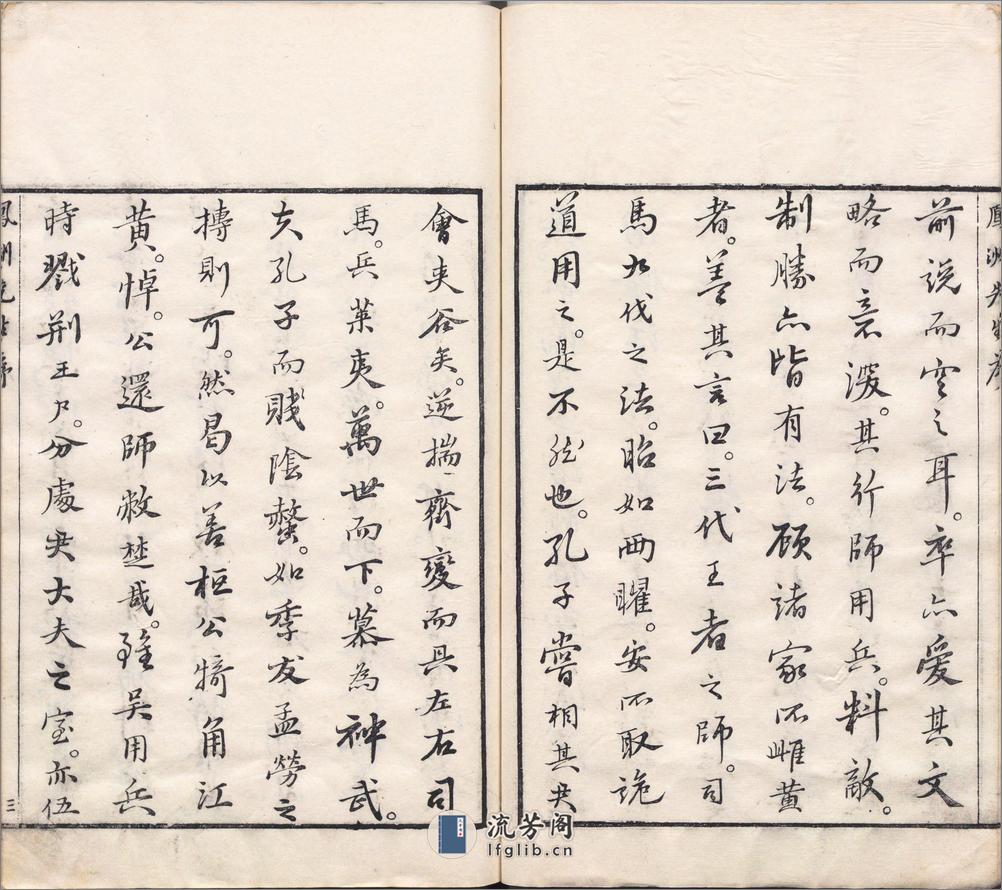 前說而空之耳。卒亦愛其文
略而意深。其行師用兵。料敵。
制勝亦皆有法。顧諸家所雌黃
者。善其言曰。三代王者之師。司
馬九伐之法。昭如兩曜。安所取詭
道用之。是不然也。孔子嘗相其君
會夾谷矣。逆揣齊變而具左右司
馬。兵萊夷。萬世而下。慕為神武。
夫孔子而賤陰螫。如季友孟勞之
摶則可。然曷以善桓公犄角江
黃。悼。公還師敝楚哉。雖吳用兵
時戮荆王尸。分處君大夫之室。亦伍
三
流芳阁
lfglib.cn